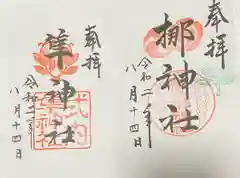 奉拝
隼神社
令和二年
八月十四日
奉拝
梛神社
令和二年
八月十四日